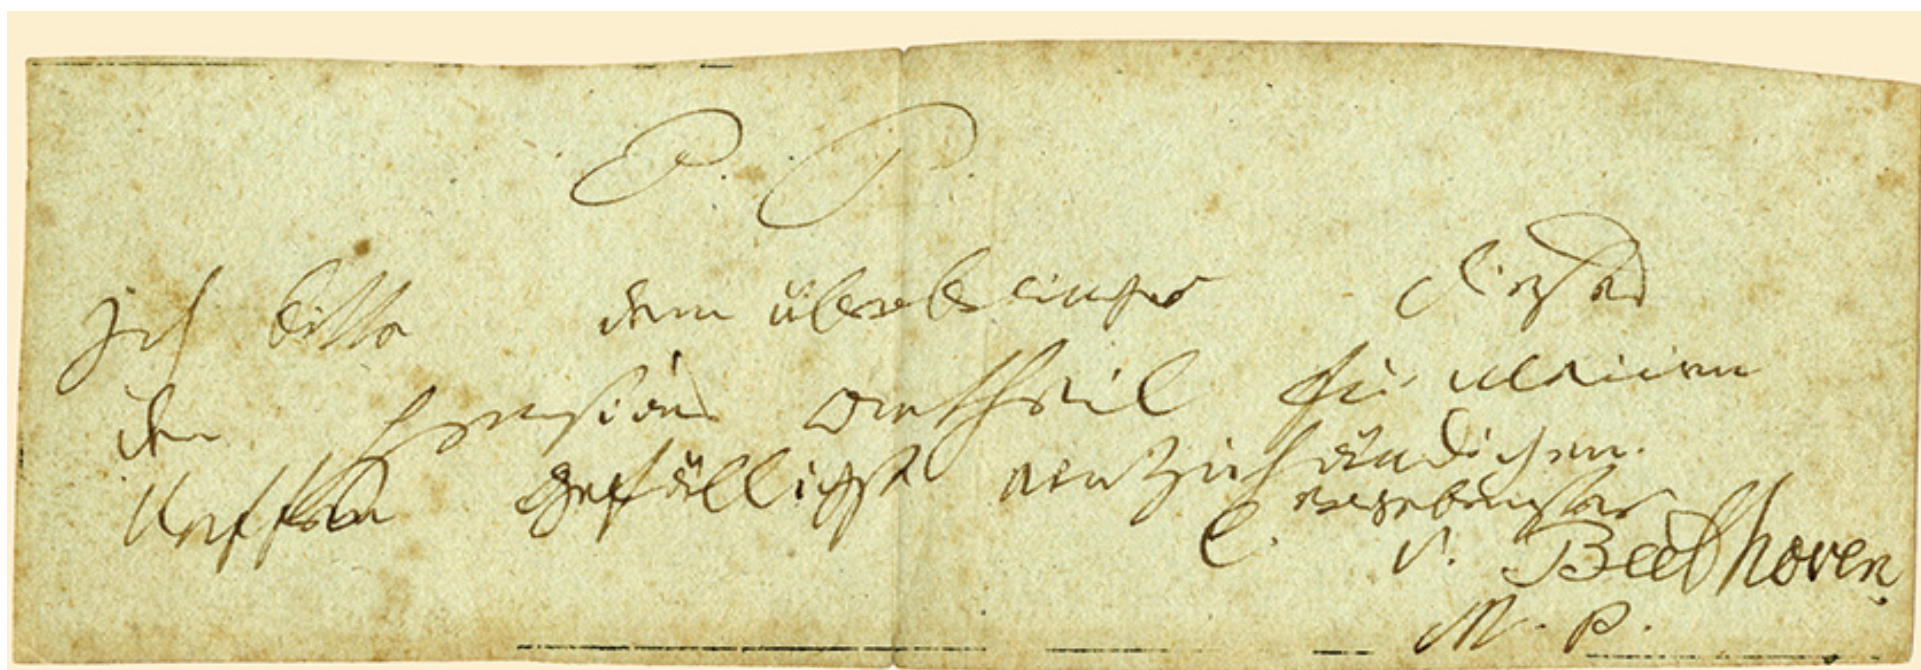 P. P.
Ich bitte dem überbringer dieses
den pension antheil für meinen
Neffen gefälligst einzuhändigen.
ergebenster
L. v. Beethoven
M. P.